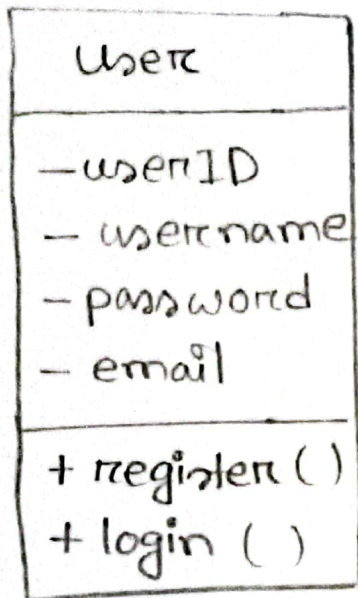 User
- userID
- username
- password
- email
+ register ()
+ login ( )